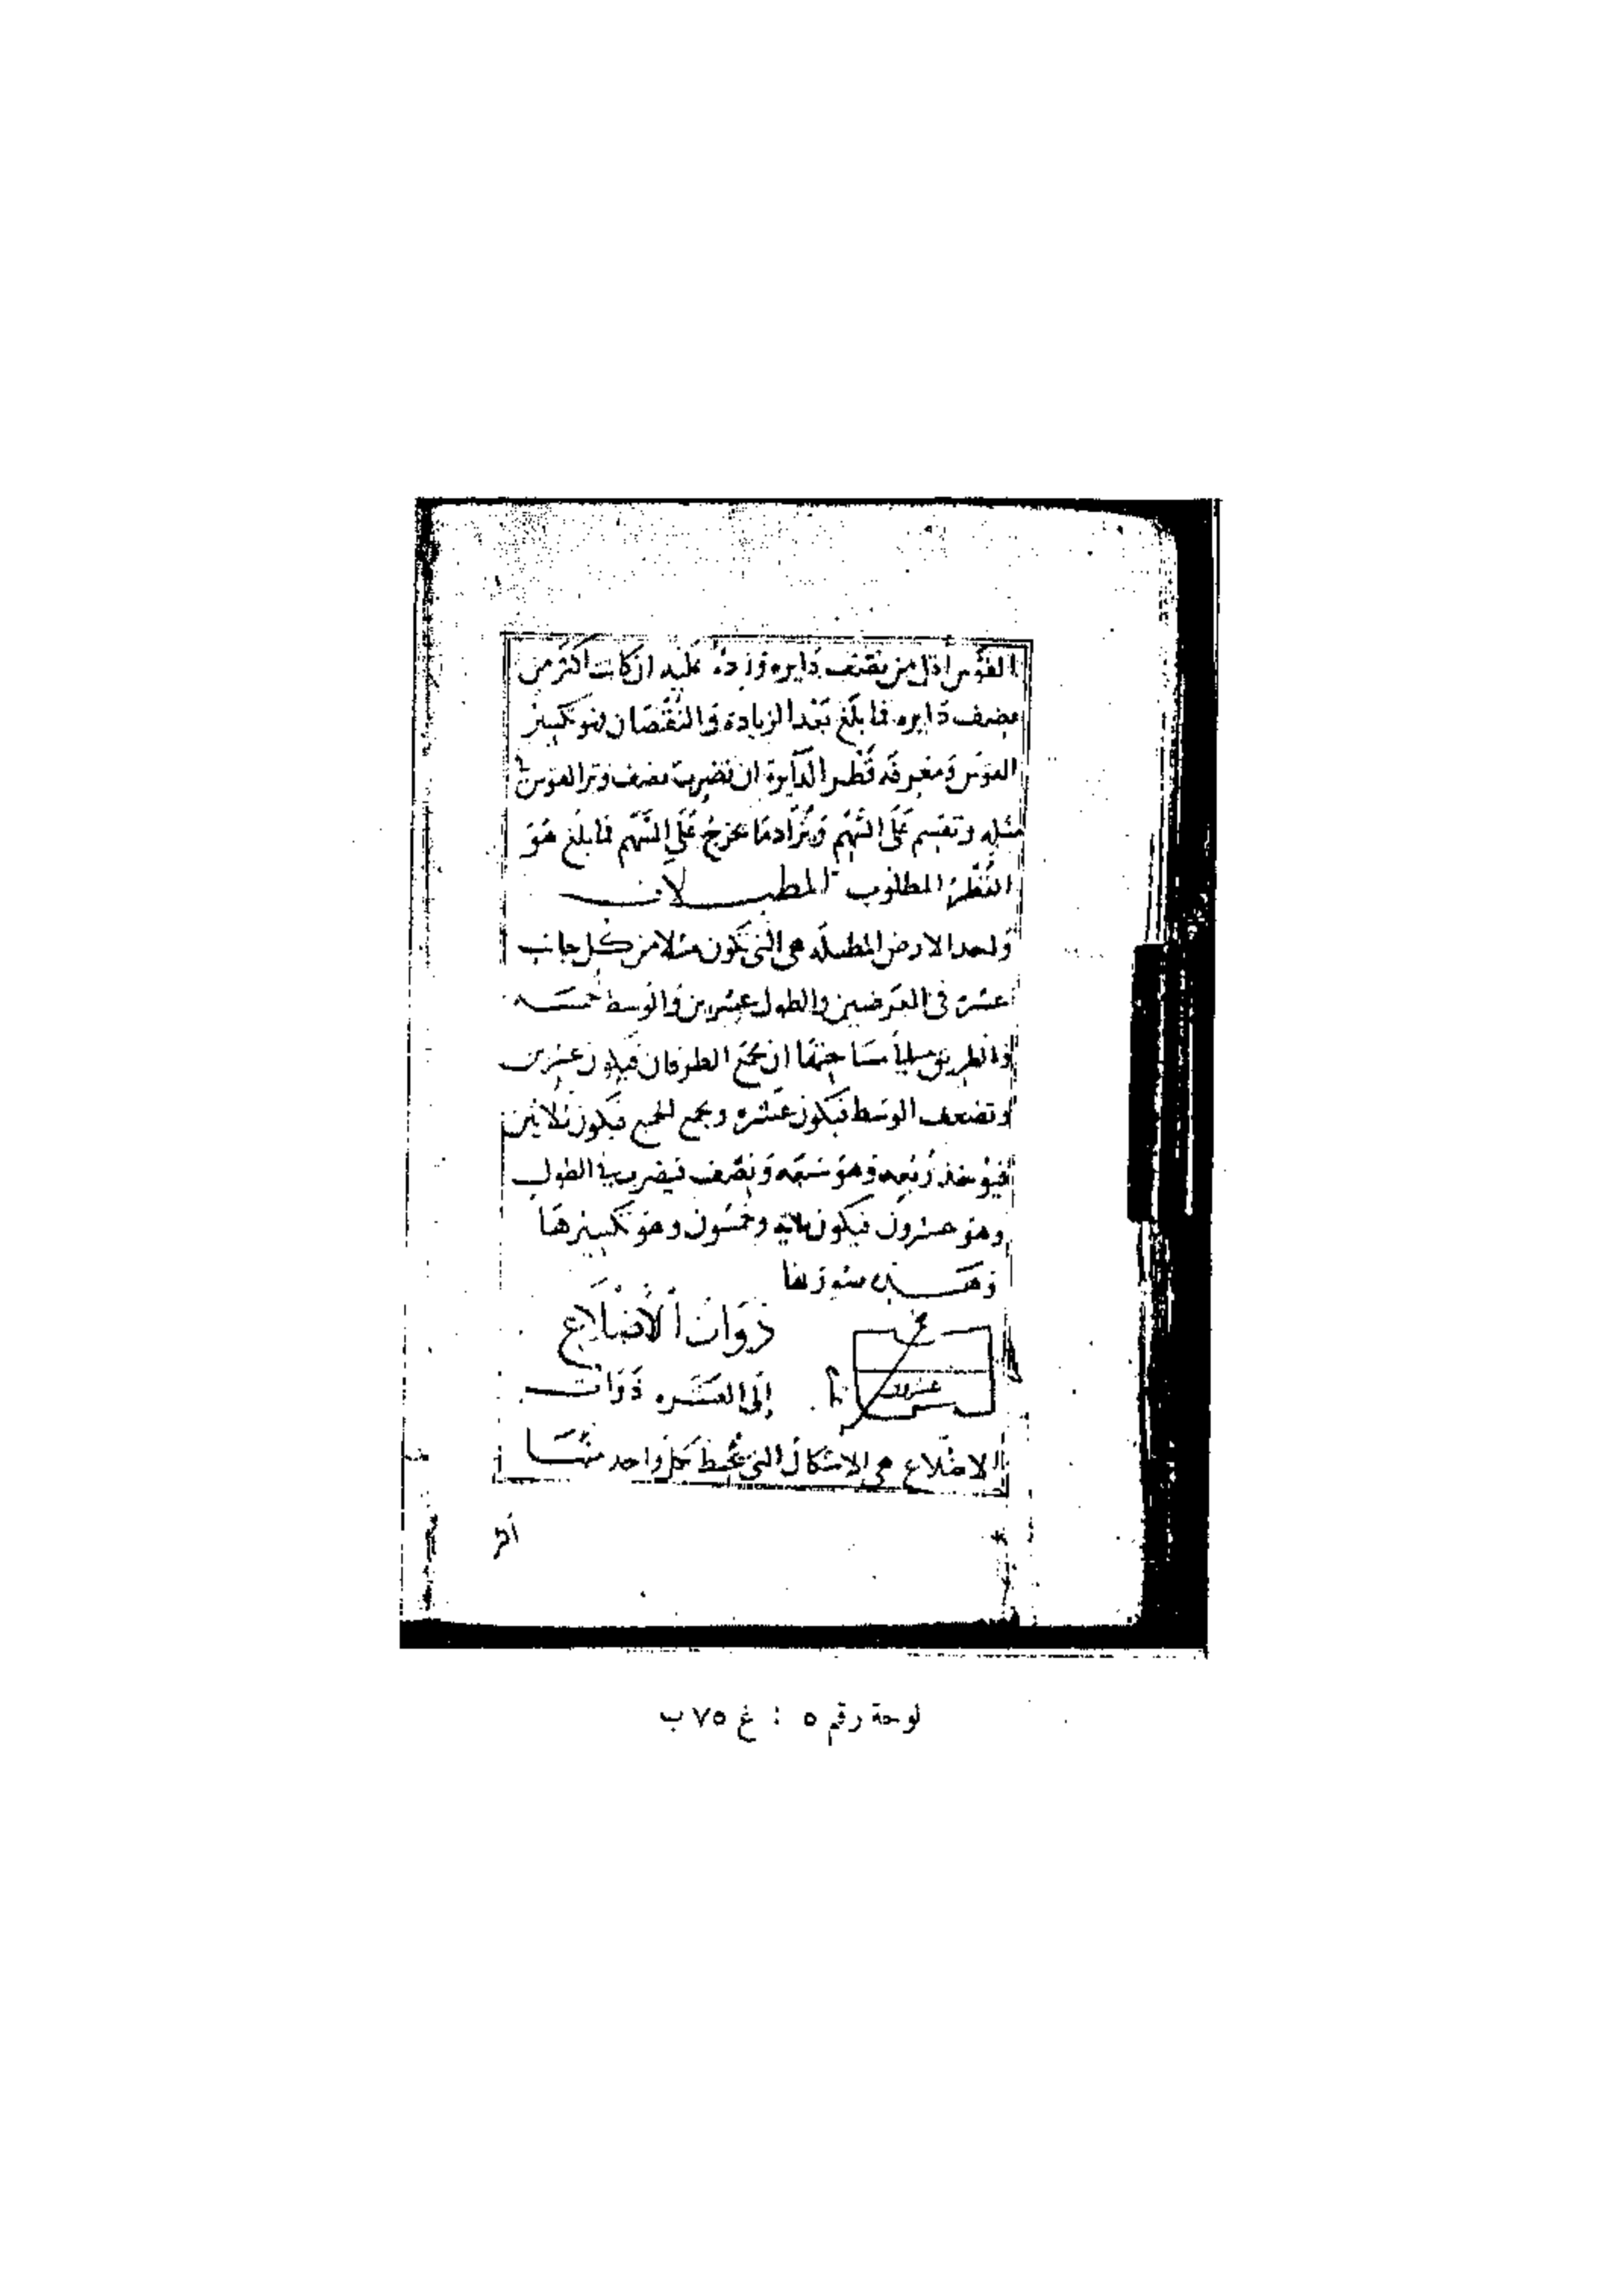 القوس أقل من نصف دايره وزده عليه ان كانت اكثر من
نصف دايره فما بلغ بَعْد الزيادة وَالنُقْصَان فهو تكسير
القوس وَمعرفه قُطر الدآيرة ان تضرب نصف وتر القوس في
مثله وتقسم عَلَى السَّهْم وَيُزَاد مَا يخرج عَلَى السَّهْم فما بلغ هُوَ
القُطْر المطلوب المطبــلات
وَاحد الارض المطبله هى التى تكون مثلا من كل جانب
عشره فى العَرضين والطول عشرين وَالوسط خمسَه
وَالطريق الى مسَاحتهَا ان تجمَع الطرفان فيكون عشرين
وتضعف الوسَط فيكون عَشره ويجمع الجميع فيكون ثلاثين
فيؤخذ رُبعه وَهوَ سَبعَه وَنصف فيضرب فى الطول
وهوَ عشرون فيكون مايه وخمسُون وهوَ تكسيرهَا
وَهَـــذه صورتها
ذَوَات الأضلَاع
عشرون
إلَى العشَره ذَوَات
الاضلاع هى الاشكال التى تحيط بكل واحد منهَــا
لوحة رقم ٥ : غ ٧٥ ب